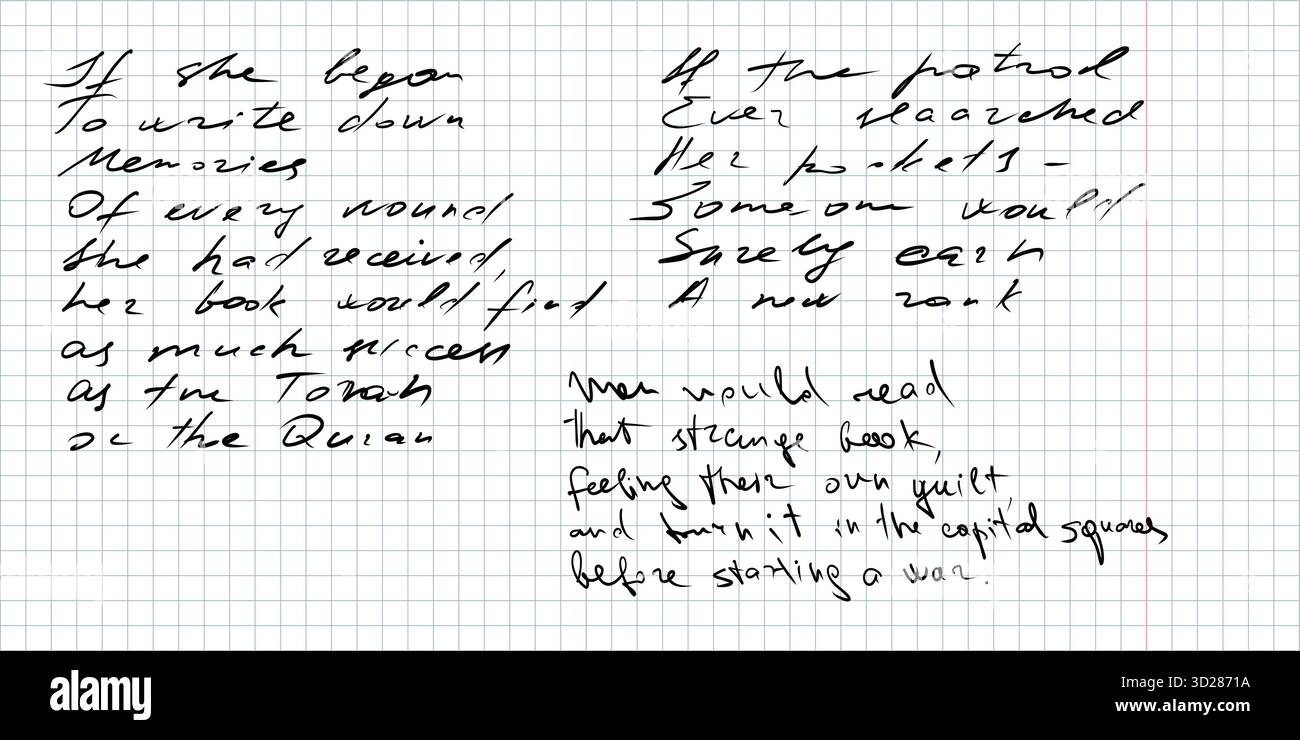 If she began
To write down
Memories
Of every wound
She had received,
her book would find
as much success
as the Torah
or the Quran
If the patrol
Ever seaarched
Her pockets -
Someone would
Surely earn
A new rank
Men would read
that strange book,
feeling their own guilt,
and burn it in the capital squares
before starting a war.
alamy
Image ID: 3D2871A
www.alamy.com